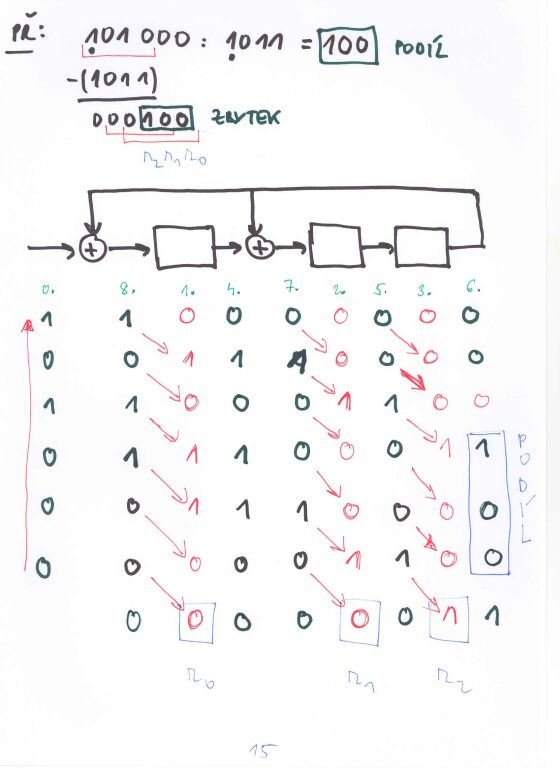 PŘ: 101000 : 1011 = 100 PODÍL
-(1011)
000100 ZBYTEK
r2 r1 r0
+ +
0. 8. 1. 4. 7. 2. 5. 3. 6.
1 1 0 0 0 0 0 0 0
0 0 1 1 1 0 0 0 0
1 1 0 0 0 1 1 0 0
0 1 1 1 0 0 0 1 1
0 0 1 1 1 0 0 0 0
0 0 0 0 0 1 1 0 0
0 0 0 0 0 0 1 1
PODÍL
r0 r1 r2
15